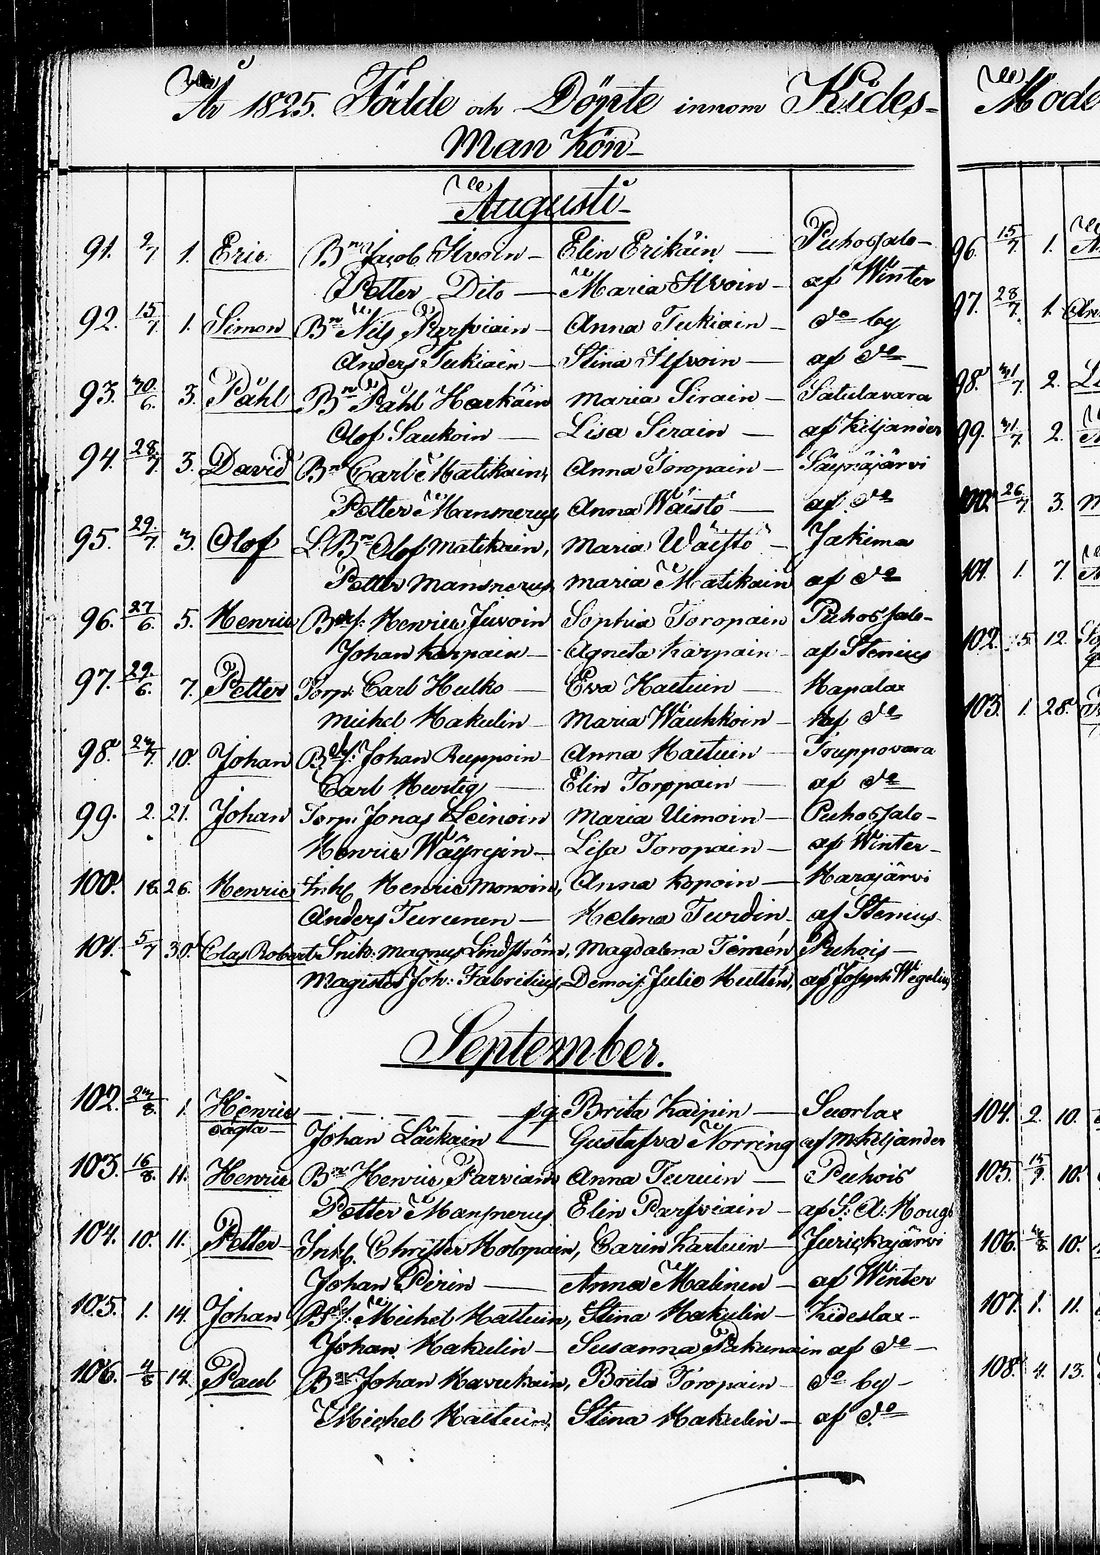 År 1825. Födde och Döpte innom Kides-
Man Kön-
Augusti-
91. 2/7 1. Eric Bn Jacob Ilvoin- Elin Erikäin- Puhossalo-
Petter Dito- Maria Ilvoin- af Winter
92. 15/7 1. Simon Bn Nils Parfviain- Anna Tukiain- do by
Anders Tukiain- Stina Ilfvoin- af do
93. 30/6. 3. Påhl Bn Påhl Harkäin Maria Sirain- Satulavara
Olof Saukoin- Lisa Sirain- af Kiljander
94. 28/7 3. David Bn Carl Matikain, Anna Toropain- Säynäjärvi
Petter Mansnerus, Anna Wäistö- af do
95. 29/7. 3. Olof L. Bn Olof Matikain, Maria Wäistö- Jakima
Petter Mansnerus, Maria Matikain af do
96. 27/6. 5. Henric Henric Juvoin Sophia Toropain Puhossalo-
Johan Karpain- Agneta Karpain- af Stenius
97. 29/6. 7. Petter Torp: Carl Hulko- Eva Hattuin- Hapalax
Michel Hakulin- Maria Wäuhkoin- af do
98. 10. Johan Johan Ruppoin- Anna Hattuin- Truppovara
Carl Hertig- Elin Toropain- af do
99. 2. 21. Johan Torp: Jonas Leinoin Maria Uimoin- Puhossalo-
Henric Wäyrysin- Lisa Toropain- af Winter-
100. 18. 26. Henric Inh. Henric Monoin, Anna Kopoin- Harajärvi
Anders Turunen- Helena Turdin- af Stenius
101. 5/7 30. Clas Robert Snik: Magnus Lindström, Magdalena Temén Puhois-
Magister Joh: Fabritius, Demois: Julie Hultin, af Joseph Wegelius
September.
102. 1. Henric Brita Kaipin- Suorlax
oägta- Johan Läikäin Gustafva Norring af M Kiljander
103. 16/8. 11. Henric Bn Henric Parviain Anna Turuin- Puhois
Petter Mansnerus Elin Parfviain- af S: A: Houg
104. 10. 11. Petter Inh. Christer Holopain, Carin Kartuin- Jurickajärvi
Johan Pirin- Anna Malinen- af Winter
105. 1. 14. Johan Michel Hattuin, Stina Hakulin- Kideslax-
Johan Hakulin- Susanna Pakunain af do-
106. 4/8 14. Paul Bn Johan Havukain, Brita Toropain- do by-
Michel Hattuin, Stina Hakulin- af do
Mode
96. 15/7 1.
97. 28/7. 1.
98. 31/7 2.
99. 31/7 2.
100. 26/7 3.
101. 1. 7.
102. 5. 12.
103. 1. 28.
104. 2. 10.
105. 10.
106. 10.
107. 1. 11.
108. 4. 13.